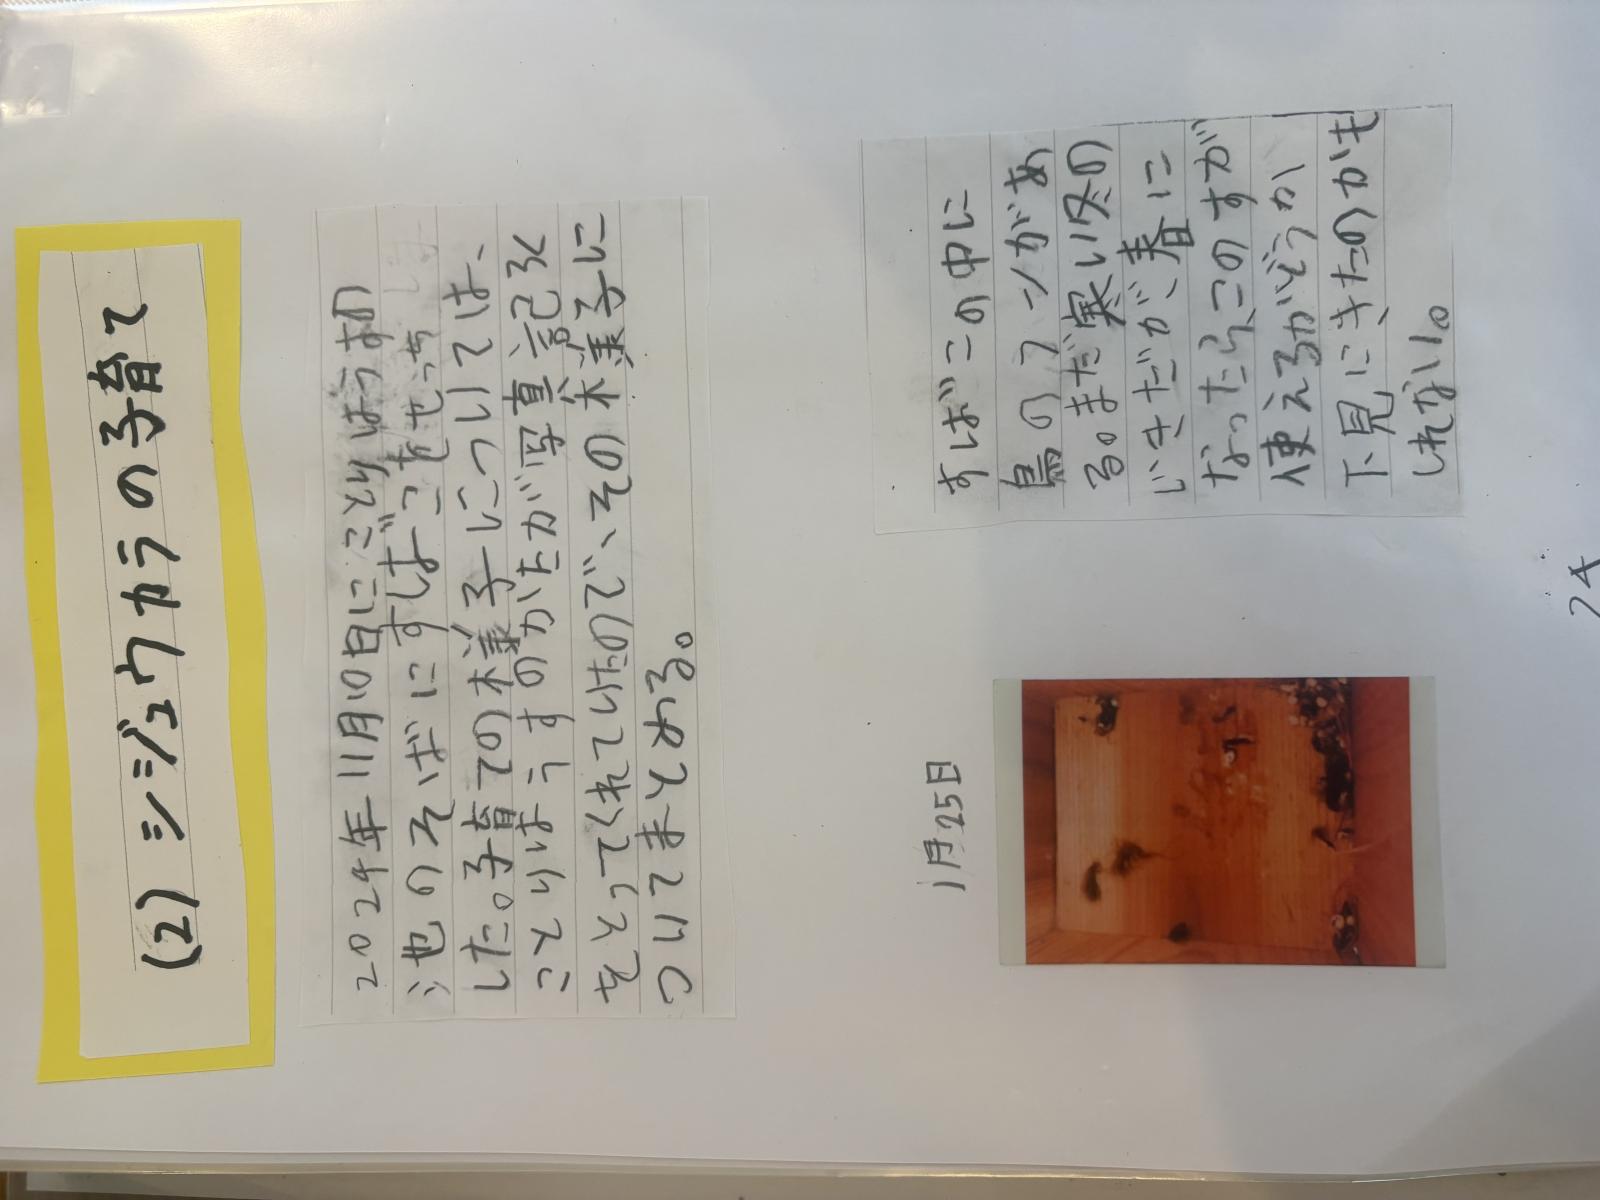 (2) シジュウカラの子育て
2024年11月10日にことりはうすの
池のそばにすばこをせっち
した。子育ての様子については、
ことりはうすのかたが写真記ろく
をとってくれていたので、その様子に
ついてまとめる。
1月25日
すばこの中に
鳥のフンがあ
る。まだ寒い冬の
じきだが、春に
なったら、このすが
使えるかどうか
下見にきたのかも
しれない。
24